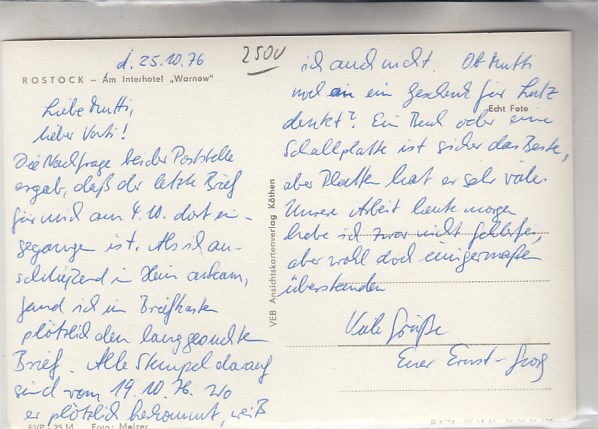 d. 25.10.76
2500
ROSTOCK – Am Interhotel „Warnow"
Liebe Mutti,
lieber Vati!
Die Nachfrage bei der Poststelle
ergab, daß der letzte Brief
für mich am 4.10. dort ein-
gegangen ist. Als ich an-
schließend in Heim ankam,
fand ich im Briefkasten
plötzlich den langgesuchten
Brief. Alle Stempel darauf
sind vom 19.10.76. Wo
er plötzlich herkommt, weiß
ich auch nicht. Ob Mutti
noch an ein Geschenk für Lutz
denkt? Ein Buch oder eine
Schallplatte ist sicher das Beste,
aber Platten hat er sehr viele.
Unsere Arbeit heute morgen
habe ich zwar nicht geschlafen,
aber wohl doch einigermaßen
überstanden
Viele Grüße
Euer Ernst-Georg
Echt Foto
VEB Ansichtskartenverlag Köthen
EVP 25 M Foto: Melzer